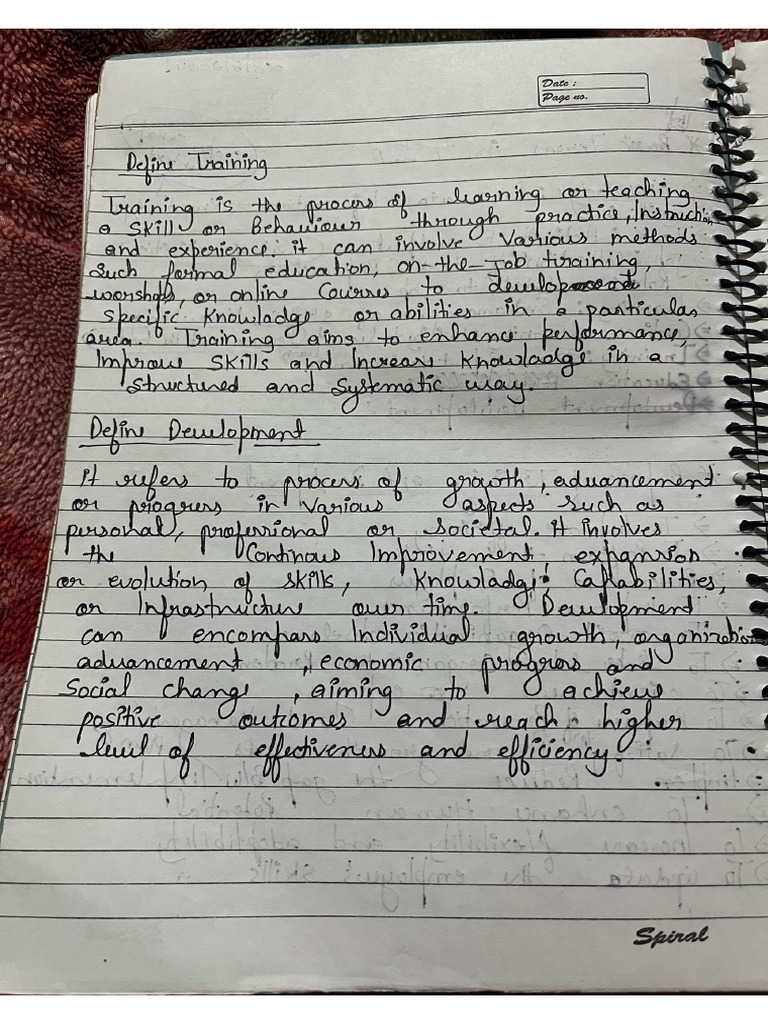 Date :
Page no.
Define Training
Training is the process of learning or teaching
a skill or Behaviour through practice, Instruction
and experience. it can involve Various methods
such formal education, on-the-Job training,
worshops, or online Courses, to develop
specific Knowladge or abilities in a particular
area. Training aims to enhance performance,
Improve Skills and Increase Knowladge in a
structured and systematic way.
Define Development
it refers to process of growth, advancement
or progress in Various aspects such as
personal, professional or societal. it involves
the Continous Improvement expansion
or evolution of skills, Knowladge Capabilities,
or Infrastructure over time. Development
can encompass Individual growth, organization
advancement, economic progress and
Social change, aiming to achieve
positive outcomes and reach higher
level of effectiveness and efficiency.
Spiral